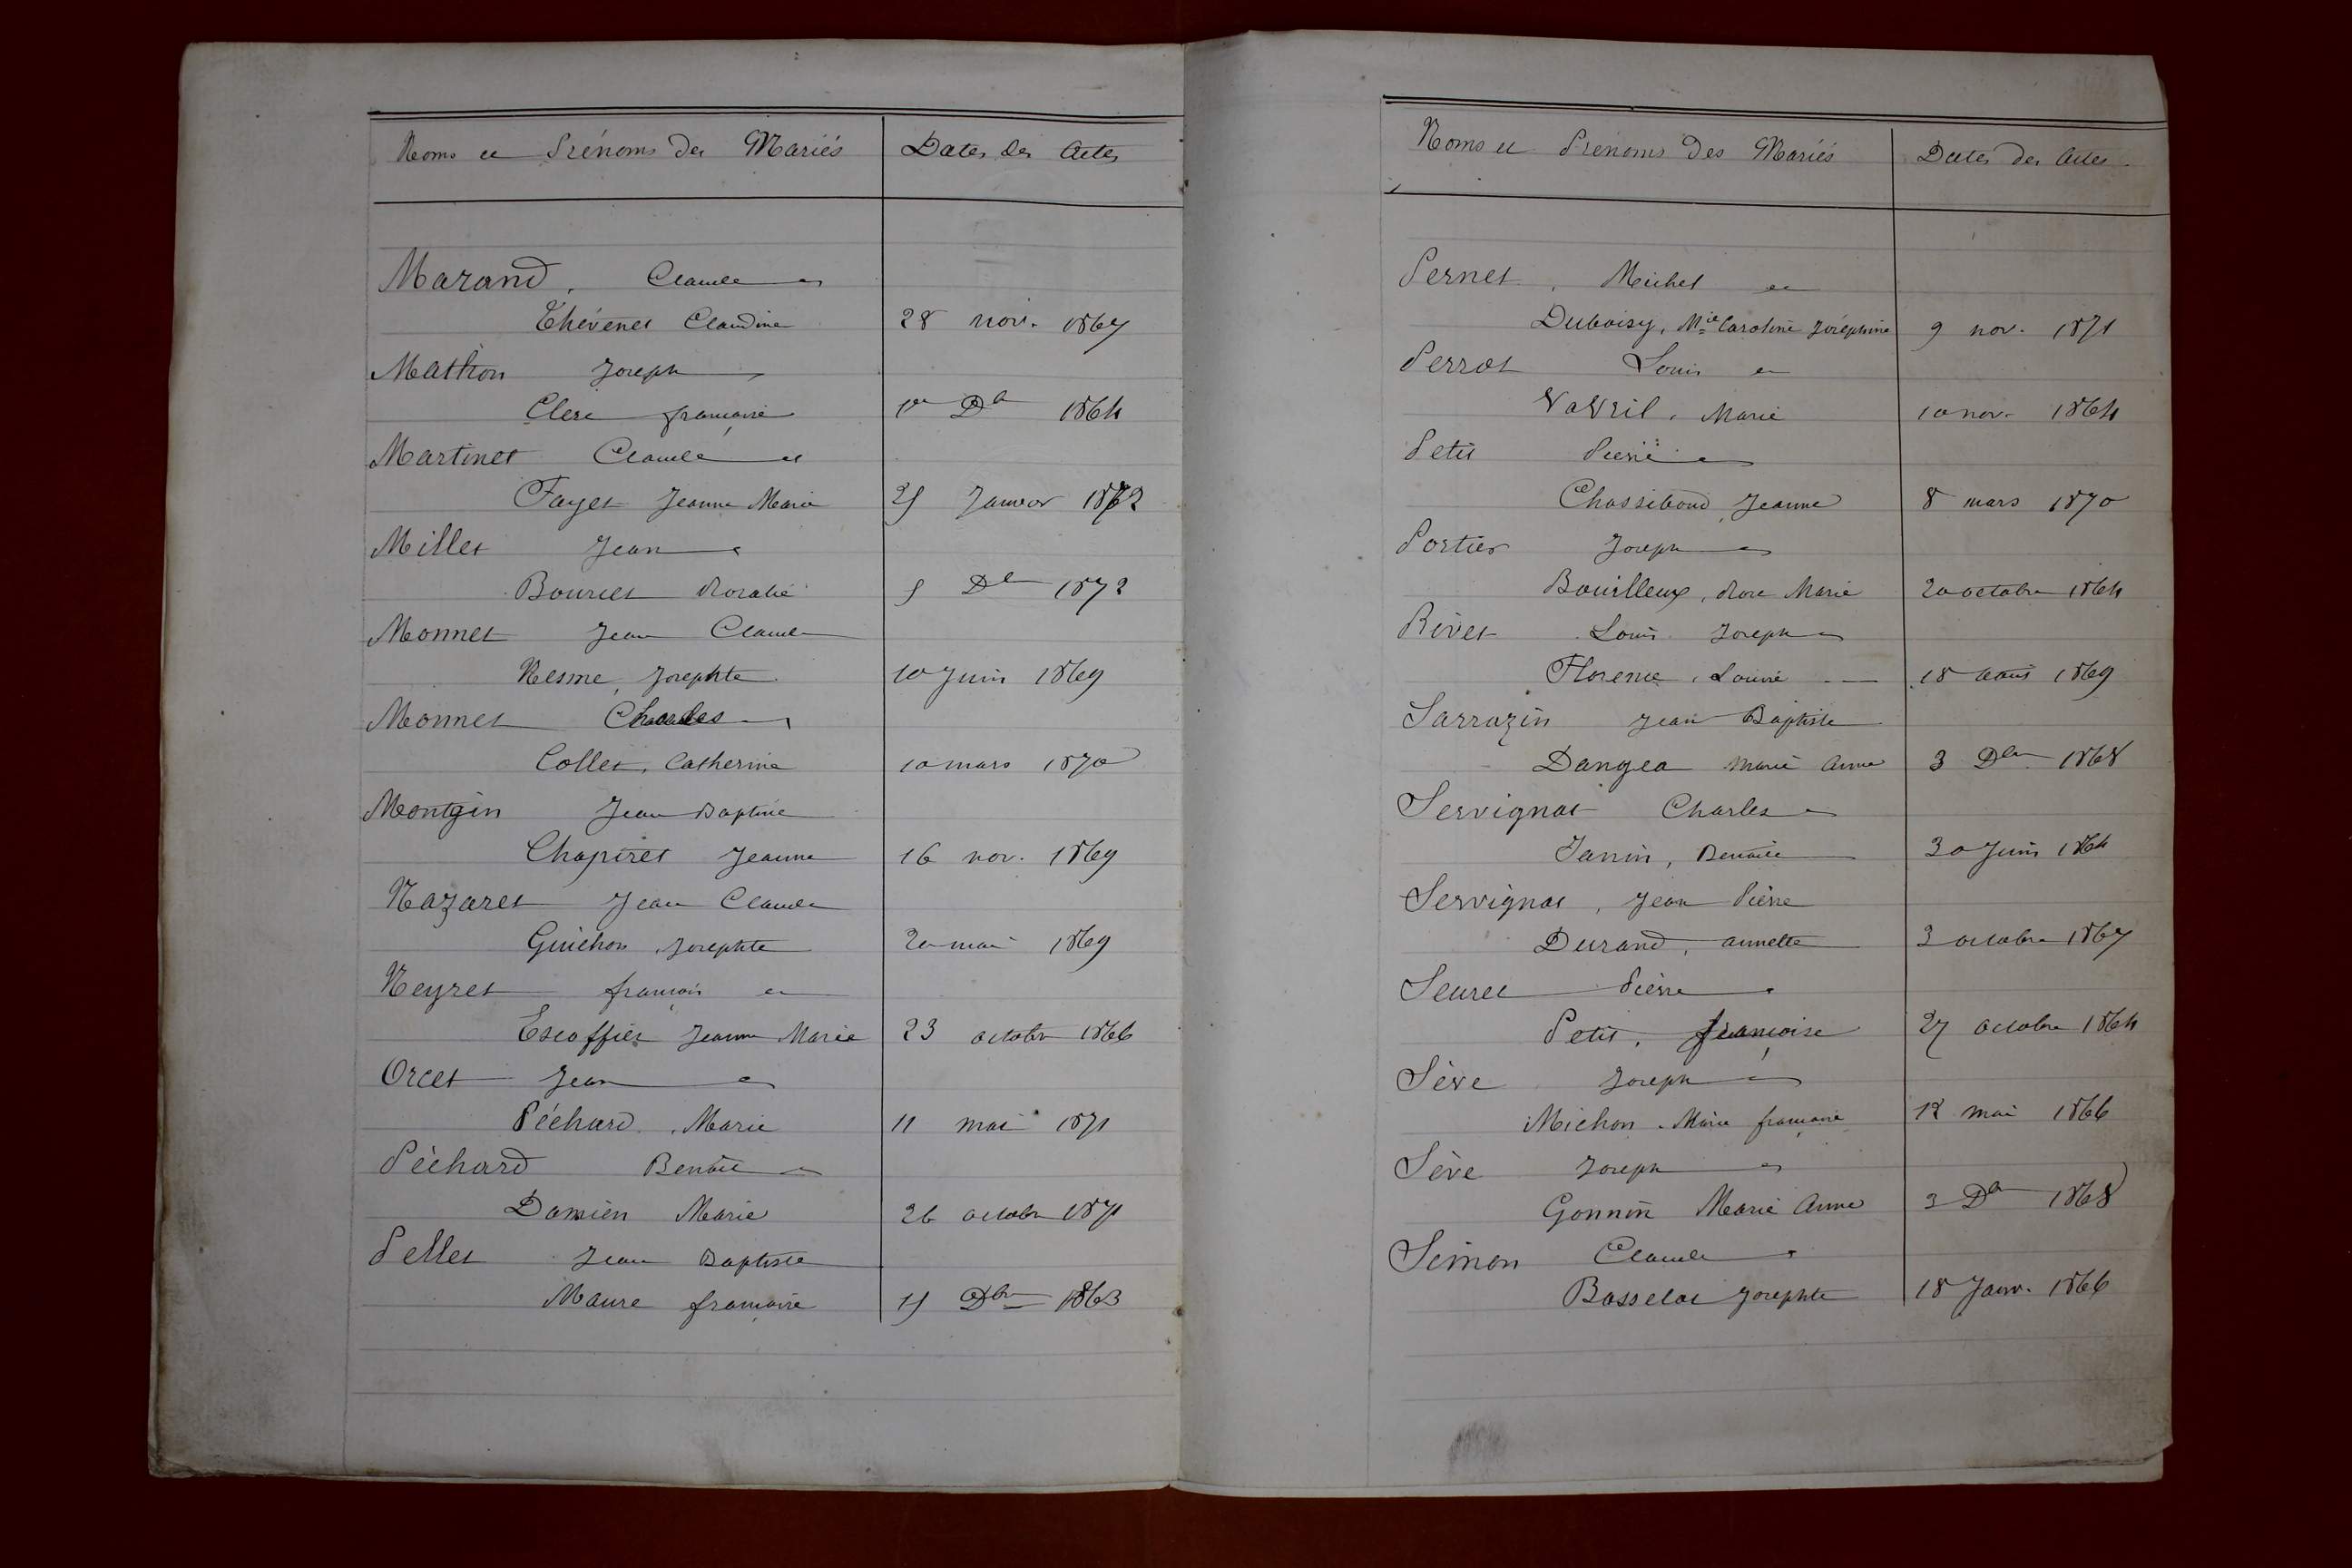 Noms et Prénoms des Mariés Dates des Actes
Marand, Claude et
Thévenet Claudine 28 nov. 1867
Mathon Joseph
Clerc françoise 1er Dbre 1864
Martinet Claude et
Fayet Jeanne Marie 25 Janvier 1872
Millet Jean et
Bourcet Rosalie 5 Dbre 1872
Monnet Jean Claude
Nesme, Josephte 10 Juin 1869
Monnet Charles et
Collet, Catherine 10 mars 1870
Montgin Jean Baptiste
Chapiret Jeanne 16 nov. 1869
Nazaret Jean Claude
Guichon, Josephte 20 mai 1869
Neyret françois et
Escoffier Jeanne Marie 23 octobre 1866
Orcet Jean et
Péchard, Marie 11 mai 1871
Péchard Benoit et
Damien Marie 26 octobre 1871
Pellet Jean Baptiste
Maure françoise 15 Dbre 1863
Noms et Prénoms des Mariés Dates des Actes
Pernet, Michel et
Duboisy, Mie Caroline Joséphine 9 nov. 1871
Perrot Louis et
Vavril, Marie 10 nov. 1864
Petit Pierre et
Chassiboud Jeanne 8 mars 1870
Portier Joseph et
Bouilleux, Rose Marie 20 octobre 1864
Rivet Louis Joseph et
Florence, Louise 18 Août 1869
Sarrazin Jean Baptiste
Dangea Marie Anne 3 Dbre 1868
Servignat Charles et
Janin, Benoite 30 Juin 1864
Servignat, Jean Pierre
Durand, annette 3 octobre 1867
Seuret Pierre et
Petit, françoise 27 octobre 1864
Sève Joseph et
Michon, Marie françoise 18 mai 1866
Sève Joseph et
Gonnin Marie Anne 3 Dbre 1868
Simon Claude et
Basselat Josephte 18 Janv. 1866